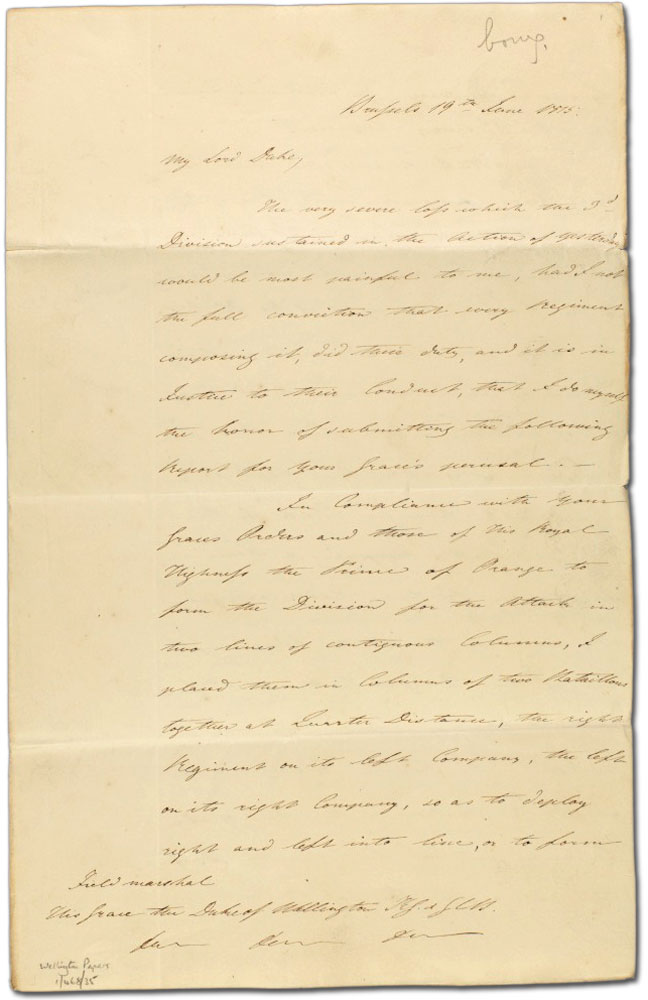 Brussels 19th June 1815.
My Lord Duke,
The very severe loss which the 3d
Division sustained in the Action of yesterday
would be most painful to me, had I not
the full conviction that every Regiment
composing it, did their duty, and it is in
Justice to their Conduct, that I do myself
the honor of submitting the following
Report for Your Grace's perusal. —
In Compliance with Your
Graces Orders and those of His Royal
Highness the Prince of Orange to
form the Division for the Attack in
two lines of contiguous Columns, I
placed them in Columns of two Battalions
together at Quarter Distance, the right
Regiment on its left Company, the left
on its right Company, so as to deploy
right and left into line, or to form
Field Marshal
His Grace the Duke of Wellington K.G. & G.C.B.
Wellington Papers
1/468/35